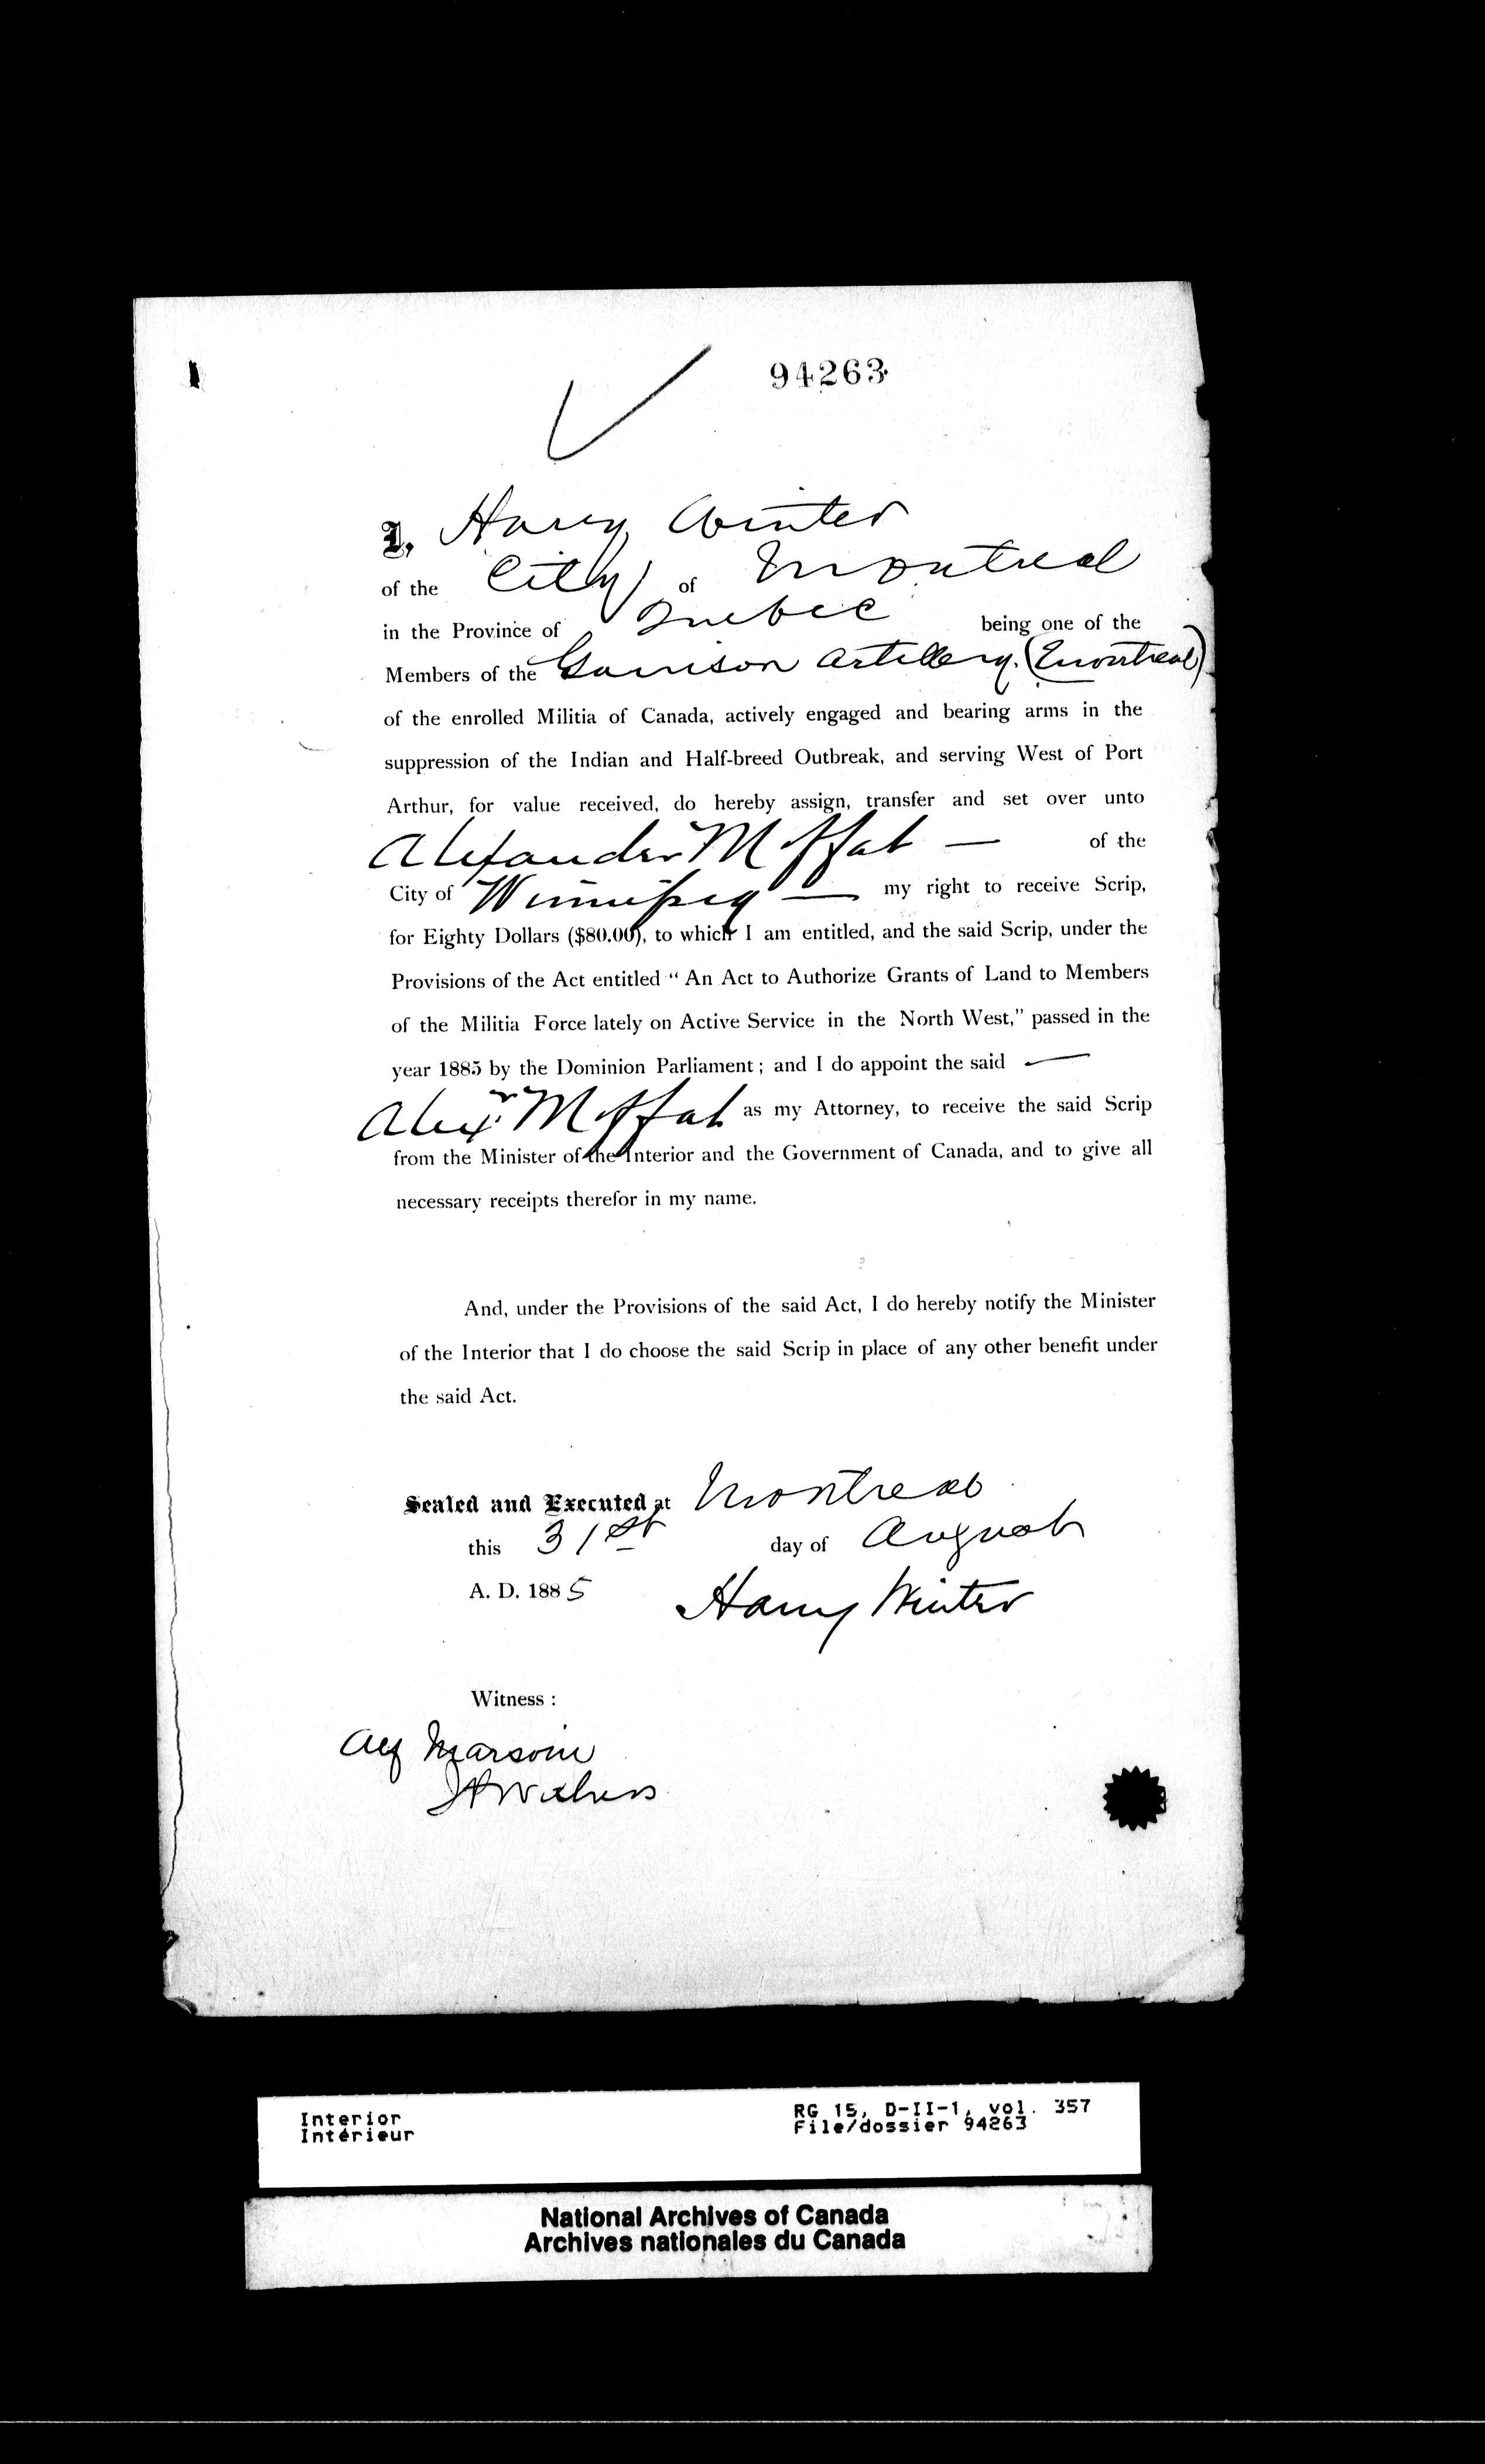 94263
I, Harry Winter
of the City of Montreal
in the Province of Quebec being one of the
Members of the Garrison Artillery. (Montreal)
of the enrolled Militia of Canada, actively engaged and bearing arms in the
suppression of the Indian and Half-breed Outbreak, and serving West of Port
Arthur, for value received, do hereby assign, transfer and set over unto
Alexander Moffat — of the
City of Winnipeg — my right to receive Scrip,
for Eighty Dollars ($80.00), to which I am entitled, and the said Scrip, under the
Provisions of the Act entitled “ An Act to Authorize Grants of Land to Members
of the Militia Force lately on Active Service in the North West,” passed in the
year 1885 by the Dominion Parliament ; and I do appoint the said —
Alexr. Moffat as my Attorney, to receive the said Scrip
from the Minister of the Interior and the Government of Canada, and to give all
necessary receipts therefor in my name.
And, under the Provisions of the said Act, I do hereby notify the Minister
of the Interior that I do choose the said Scrip in place of any other benefit under
the said Act.
Sealed and Executed at Montreal
this 31st day of August
A. D. 1885 Harry Winter
Witness :
Alf Marsoin
Interior
Intérieur
RG 15, D-II-1, vol. 357
File/dossier 94263
National Archives of Canada
Archives nationales du Canada